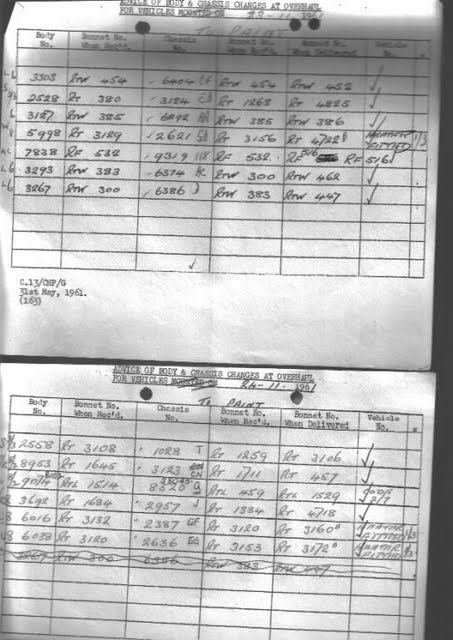 ADVICE OF BODY & CHASSIS CHANGES AT OVERHAUL
FOR VEHICLES 22-11-1961
To PAINT
Body No. Bonnet No. When Rec'd. Chassis No. Bonnet No. When Rec'd. Bonnet No. When Delivered Vehicle No.
L6 3303 RTW 454 6404 RTW 454 RTW 452 ✓
2528 RT 380 3124 RT 1263 RT 4825 ✓
6 3187 RTW 385 6292 RTW 385 RTW 386 ✓
5998 RT 3129 2621 RT 3156 RT 4722 HEATER FITTED
7838 RF 532 9319 RF 532 RF 516 RF 516 ✓
L6 3293 RTW 383 6374 RTW 300 RTW 462 ✓
L6 3267 RTW 300 6386 RTW 383 RTW 447 ✓
✓
C.13/CMP/G
31st May, 1961.
(163)
ADVICE OF BODY & CHASSIS CHANGES AT OVERHAUL
FOR VEHICLES 24-11-1961
To PAINT
Body No. Bonnet No. When Rec'd. Chassis No. Bonnet No. When Rec'd. Bonnet No. When Delivered Vehicle No.
2558 RT 3108 1028 T RT 1259 RT 3106 ✓
8953 RT 1645 3123 CN RT 1711 RT 457 ✓
RTL 1514 8520 RTL 459 RTL 1529
3692 RT 1684 2957 J RT 1334 RT 4718 ✓
6016 RT 3132 2387 GF RT 3120 RT 3160 HEATER FITTED
6038 RT 3120 2636 EG RT 3153 RT 3172 HEATER FITTED
3267 RTW 300 6386 RTW 383 RTW 447